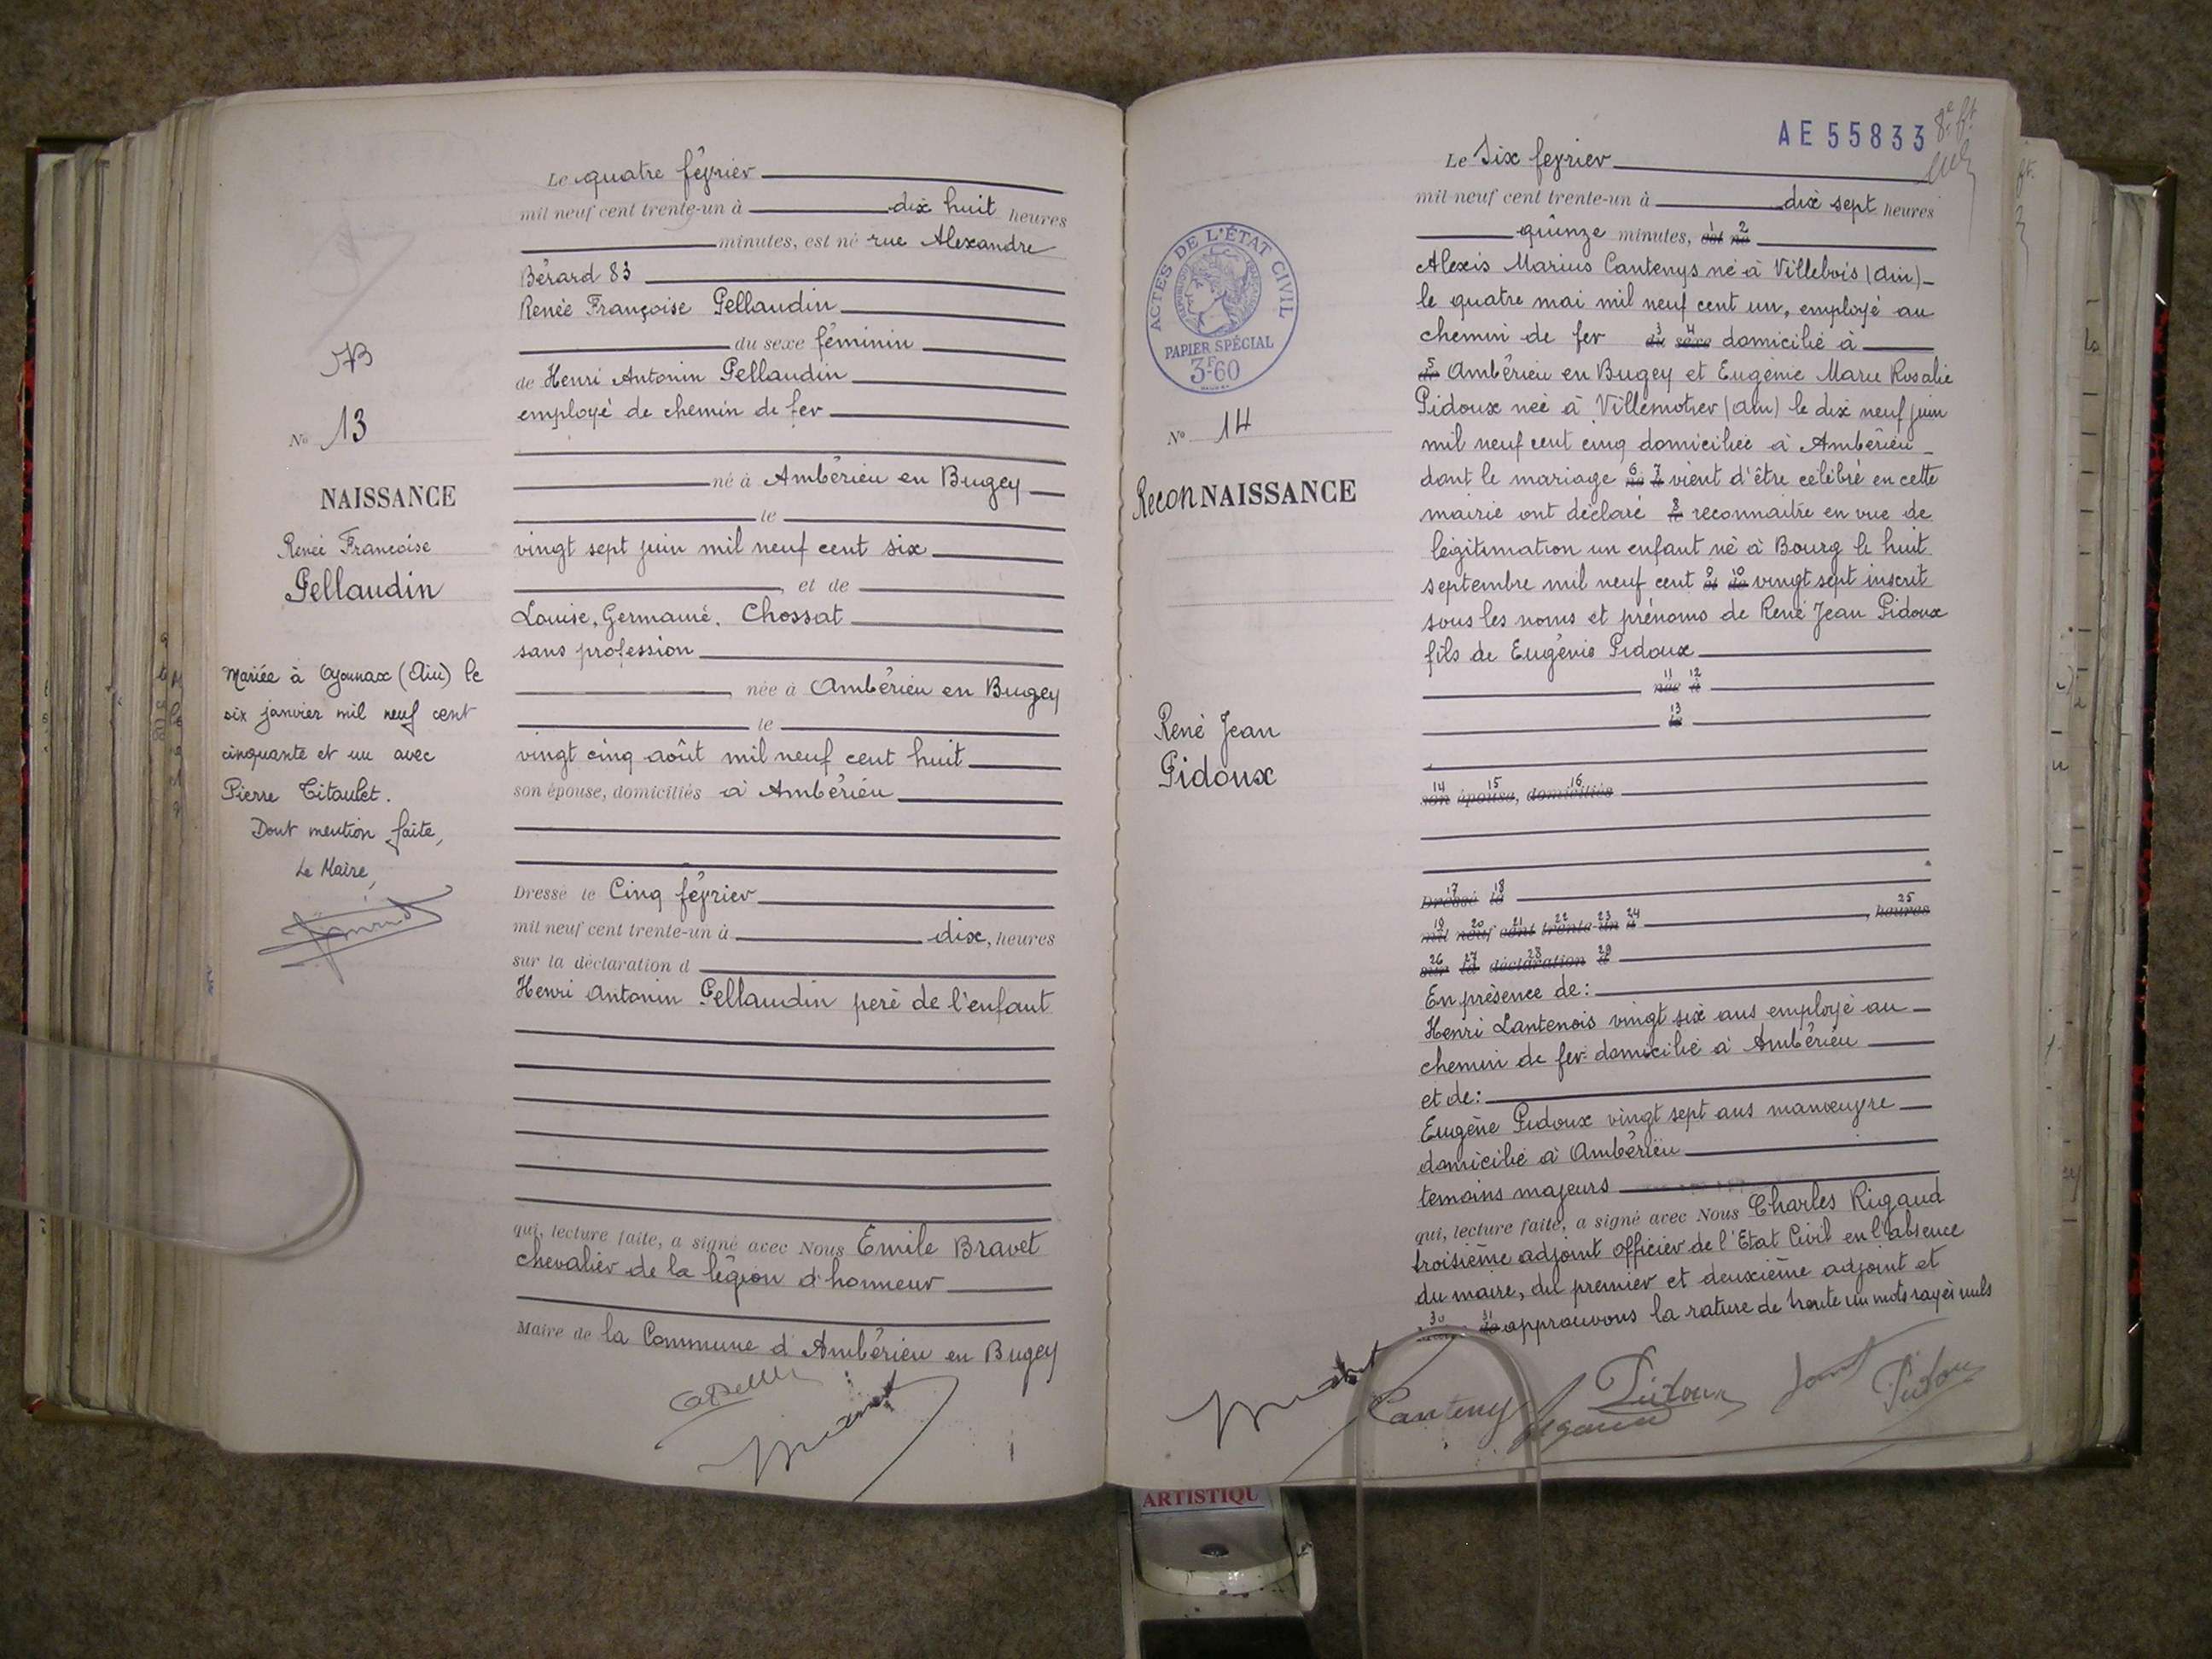 Le quatre février
mil neuf cent trente-un à dix huit heures
minutes, est né rue Alexandre
Bérard 83
Renée Françoise Pellaudin
du sexe féminin
de Henri Antonin Pellaudin
employé de chemin de fer
né à Ambérieu en Bugey
le
vingt sept juin mil neuf cent six
et de
Louise, Germaine, Chossat
sans profession
née à Ambérieu en Bugey
le
vingt cinq août mil neuf cent huit
son épouse, domiciliés à Ambérieu
Dressé le Cinq février
mil neuf cent trente-un à dix, heures
sur la déclaration d
Henri Antonin Pellaudin père de l'enfant
qui, lecture faite, a signé avec Nous Emile Bravet
chevalier de la légion d'honneur
Maire de la Commune d'Ambérieu en Bugey
No 13
NAISSANCE
Renée Françoise
Pellaudin
Mariée à Oyonnax (Ain) le
six janvier mil neuf cent
cinquante et un avec
Pierre Titaulet.
Dont mention faite,
Le Maire,
AE 55833
Le Six fevrier
mil neuf cent trente-un à dix sept heures
quinze minutes, est né 2
Alexis Marius Cantenys né à Villebois (Ain)
le quatre mai mil neuf cent un, employé au
chemin de fer 3 du 4 sexe domicilié à
5 de Ambérieu en Bugey et Eugénie Marie Rosalie
Pidoux née à Villemotier (Ain) le dix neuf juin
mil neuf cent cinq domiciliée à Ambérieu
dont le mariage 6 7 vient d'être célébré en cette
mairie ont déclaré 8 reconnaitre en vue de
légitimation un enfant né à Bourg le huit
septembre mil neuf cent 9 et 10 de vingt sept inscrit
sous les noms et prénoms de René Jean Pidoux
fils de Eugénie Pidoux
11 née 12 à
13 le
14 son 15 épouse, 16 domiciliés
17 Dressé 18 le
19 mil 20 neuf 21 cent 22 trente-23 un 24 à , 25 heures
26 sur 27 la 28 déclaration 29 d
En présence de:
Henri Lantenois vingt six ans employé au
chemin de fer domicilié à Ambérieu
et de:
Eugène Pidoux vingt sept ans manœuvre
domicilié à Ambérieu
temoins majeurs
qui, lecture faite, a signé avec Nous Charles Rigaud
troisième adjoint officier de l'Etat Civil en l'absence
du maire, du premier et deuxième adjoint et
30 31 de approuvons la rature de trente un mots rayés nuls
Cantenys
Pidoux
Rigaud
Pidoux
ACTES DE L'ÉTAT CIVIL
PAPIER SPÉCIAL
3F60
No 14
ReconNAISSANCE
René Jean
Pidoux
ARTISTIQU